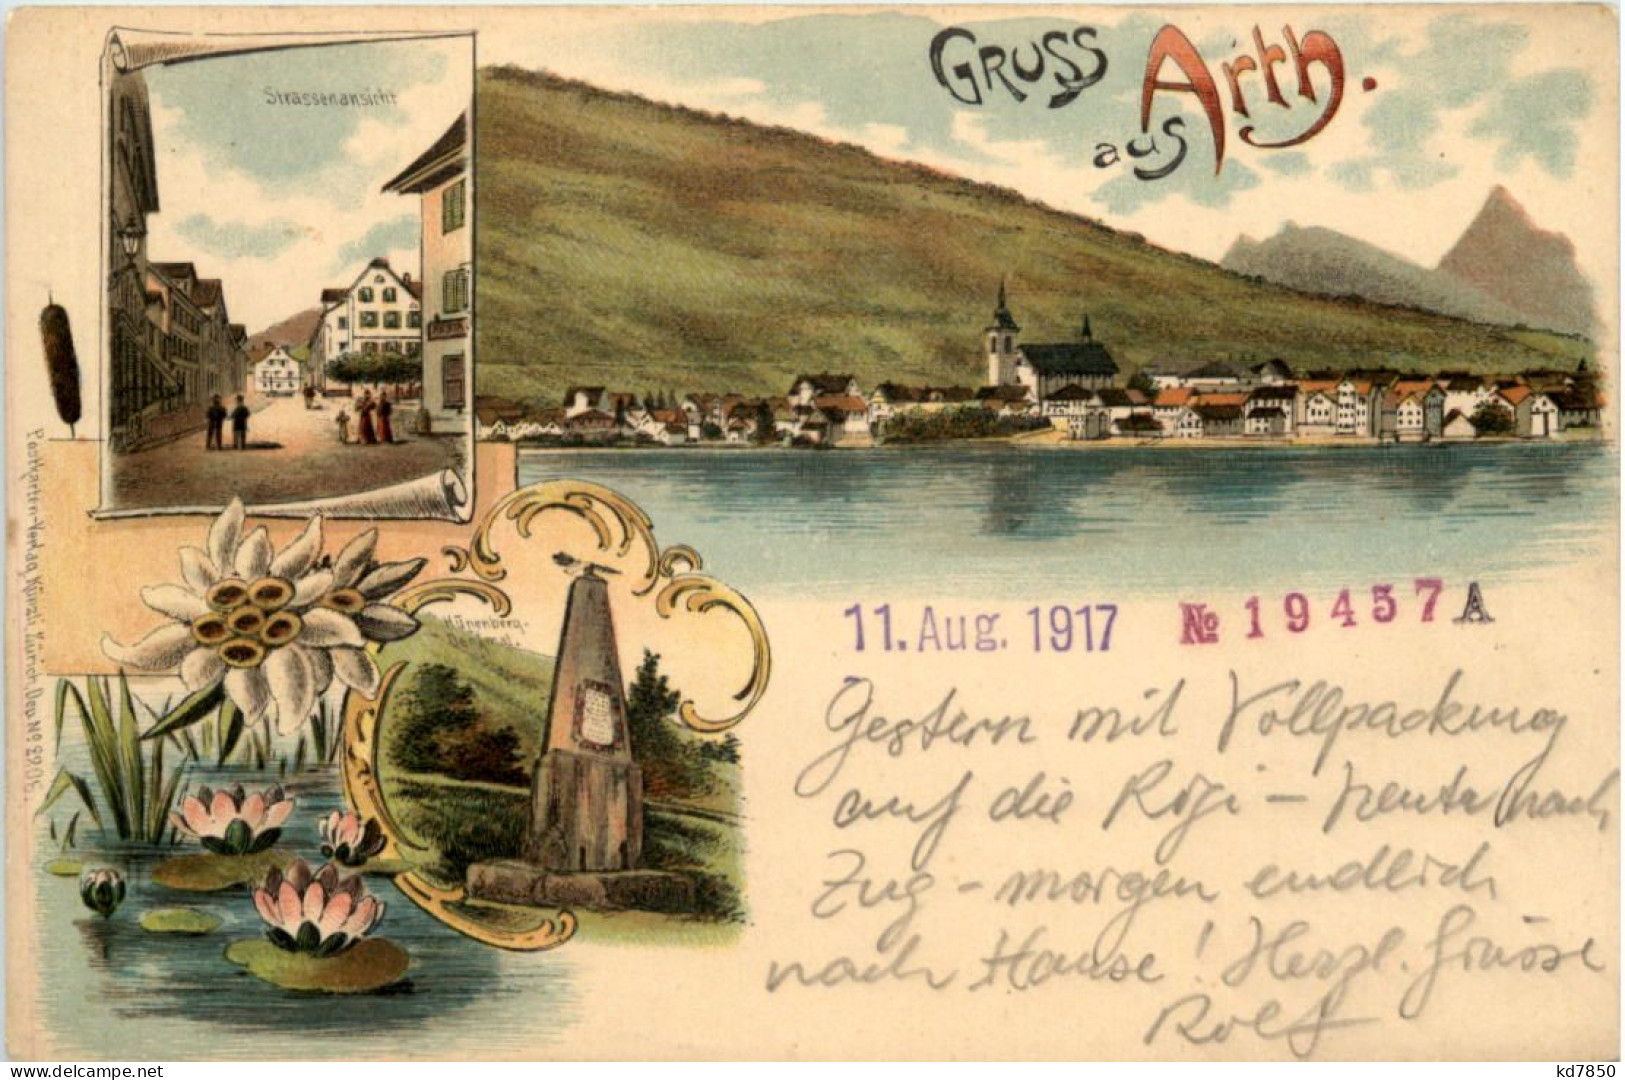 GRUSS
aus Arth.
Strassenansicht
Hünenberg-
Denkmal.
Postkarten-Verlag Künzli, Zürich, Dep. No 2906.
11. Aug. 1917 No 19457 A
Gestern mit Vollpackung
auf die Rigi – heute nach
Zug – morgen endlich
nach Hause! Herzl. Grüsse
Rolf
delcampe.net
kd7850